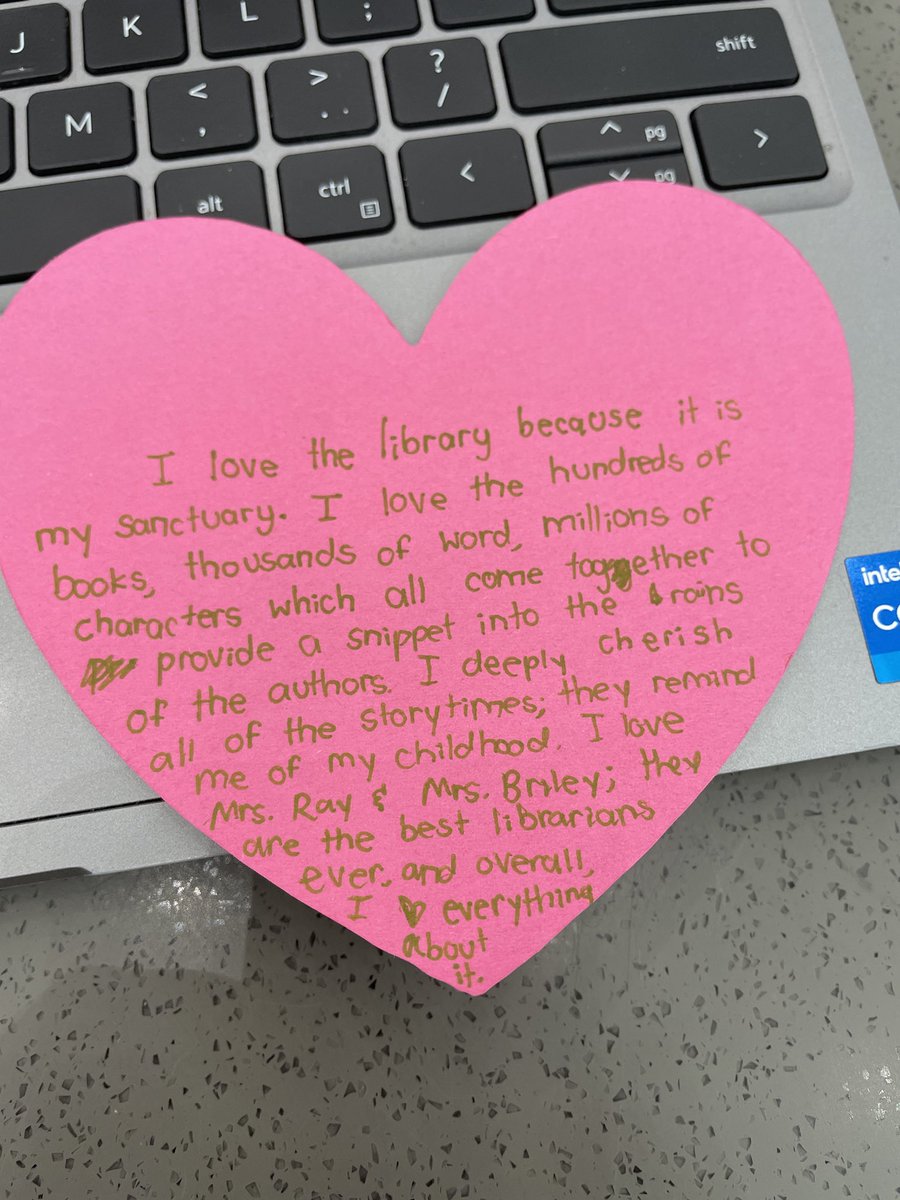 J K L ;
M < , > . . ? / shift
alt ctrl < ^ pg >
pg
I love the library because it is
my sanctuary. I love the hundreds of
books, thousands of word, millions of
characters which all come together to
provide a snippet into the brains
of the authors. I deeply cherish
all of the storytimes; they remind
me of my childhood. I love
Mrs. Ray & Mrs. they
are the best librarians
ever, and overall,
I ♥ everything
about
it.
inte
CO